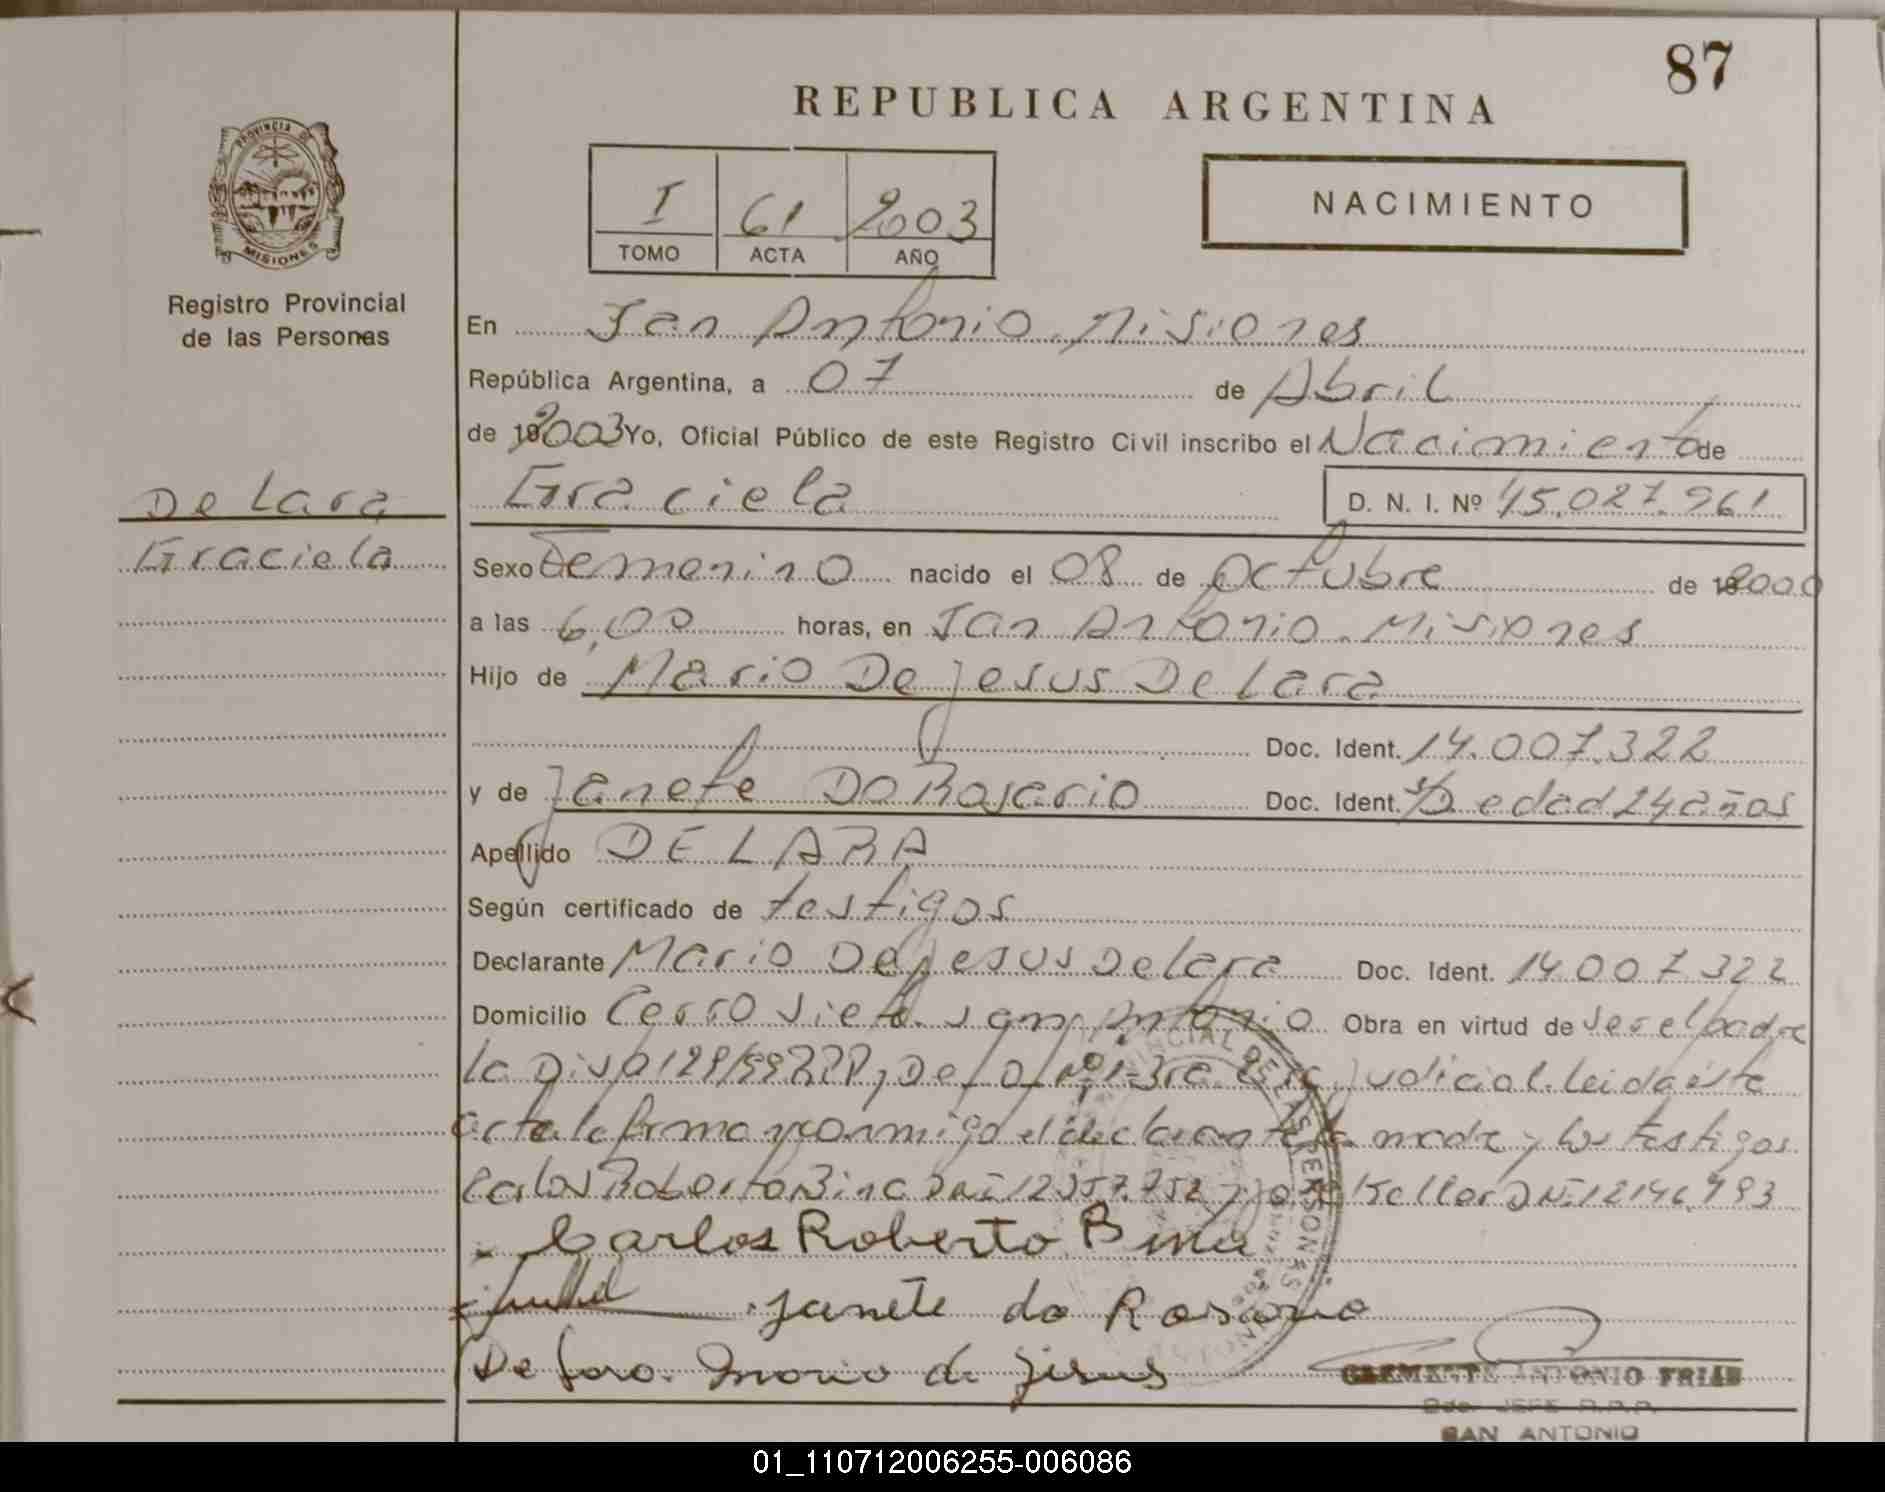 87
REPUBLICA ARGENTINA
PROVINCIA DE
MISIONES
Registro Provincial
de las Personas
I 61 2003
TOMO ACTA AÑO
NACIMIENTO
En San Antonio Misiones
República Argentina, a 07 de Abril
de 2003 Yo, Oficial Público de este Registro Civil inscribo el Nacimiento de
De Lara
Graciela
Graciela D. N. I. Nº 45.027.961
Sexo Femenino nacido el 08 de Octubre de 2000
a las 6,00 horas, en San Antonio. Misiones
Hijo de Mario De Jesus De Lara
Doc. Ident. 14.007.322
y de Janete Do Rosario Doc. Ident. S/D edad 24 años
Apellido DE LARA
Según certificado de testigos
Declarante Mario De Jesus De lara Doc. Ident. 14.007.322
Domicilio Cerro Siete. San Antonio Obra en virtud de ser el padre
la Disp 129/99 judicial. leida ésta
acta la firma y conmigo el declarante la madre y los testigos
Carlos Roberto Bina DNI 12.357.752 y Keller DNI 12146.793
Carlos Roberto Bina
Janete do Rosario
De Lara Mario de Jesus
CLEMENTE ANTONIO FRIAS
JEFE R.P.P.
SAN ANTONIO
01_110712006255-006086